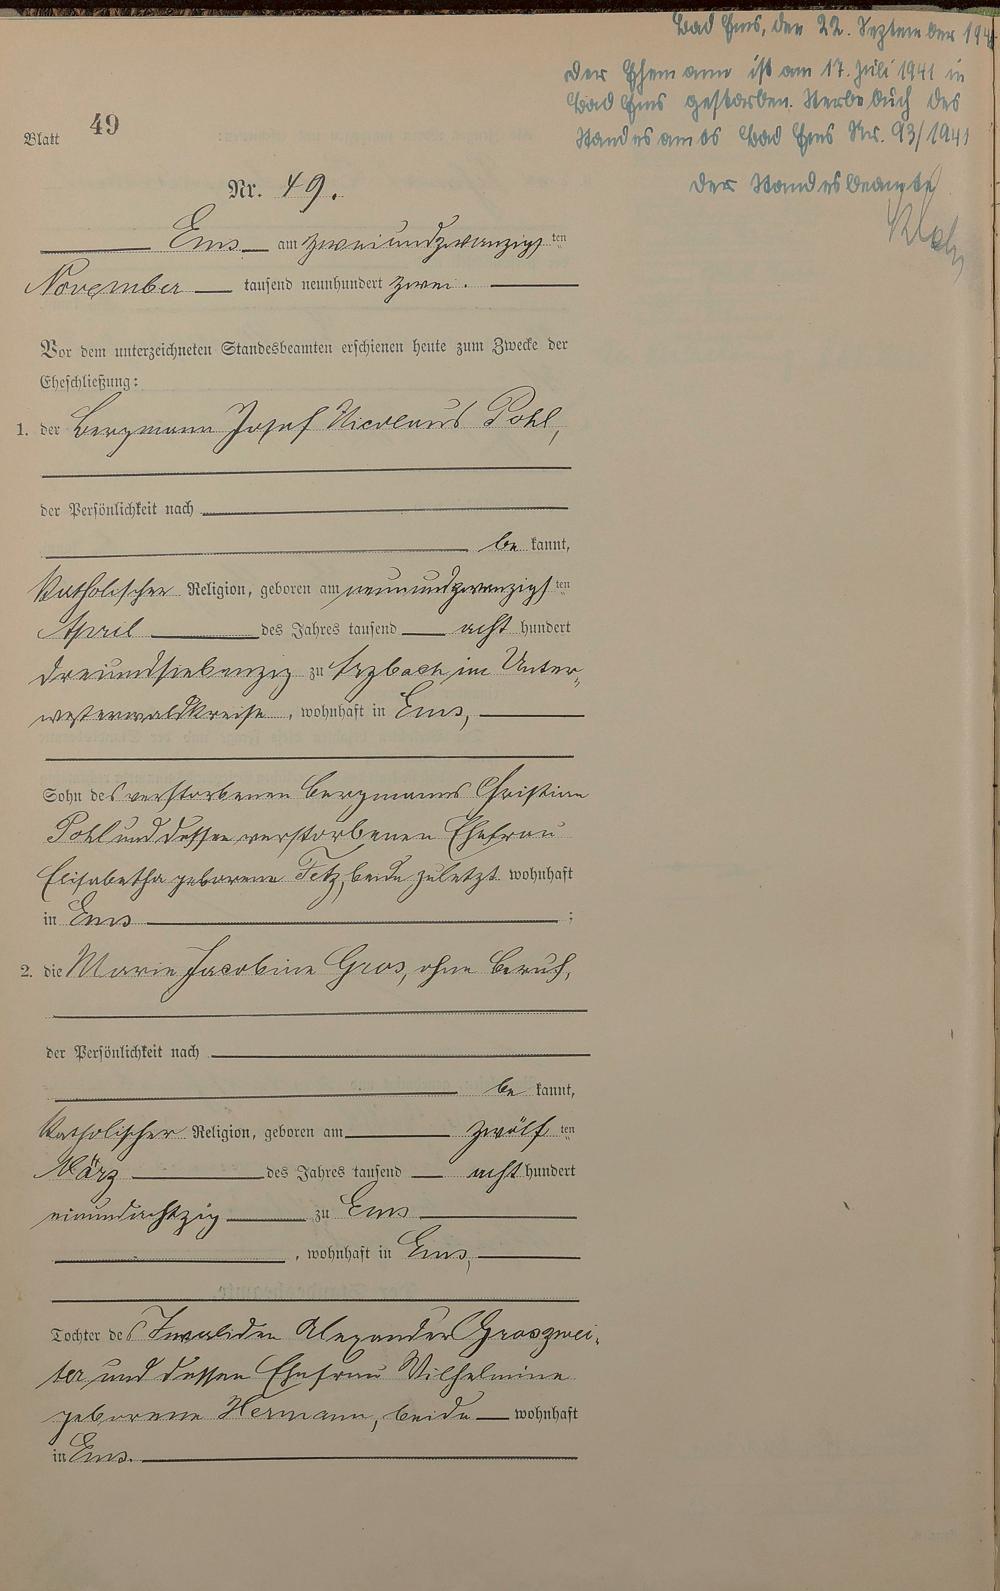 Bad Ems, den 22. September 194
der Ehemann ist am 17. Juli 1941 in
Bad Ems gestorben. Sterbebuch des
Standesamts Bad Ems Nr. 93/1941
der Standesbeamte
Blatt 49
Nr. 49.
Ems am zweiundzwanzigsten
November tausend neunhundert zwei.
Vor dem unterzeichneten Standesbeamten erschienen heute zum Zwecke der
Eheschließung:
1. der Bergmann Josef Nicolaus Pohl,
der Persönlichkeit nach
be kannt,
katholischer Religion, geboren am neunundzwanzigsten
April des Jahres tausend acht hundert
dreiundsiebenzig zu Arzbach im Unter-
westerwaldkreise, wohnhaft in Ems,
Sohn des verstorbenen Bergmanns Christian
Pohl und dessen verstorbenen Ehefrau
Elisabetha geborene Fetz, beide zuletzt wohnhaft
in Ems ;
2. die Marie Jacobine Gros, ohne Beruf,
der Persönlichkeit nach
be kannt,
katholischer Religion, geboren am zwölften
März des Jahres tausend acht hundert
einundachtzig zu Ems
, wohnhaft in Ems,
Tochter des Invaliden Alexander Gros zwei-
ter und dessen Ehefrau Wilhelmine
geborene Hermann, beide wohnhaft
in Ems.